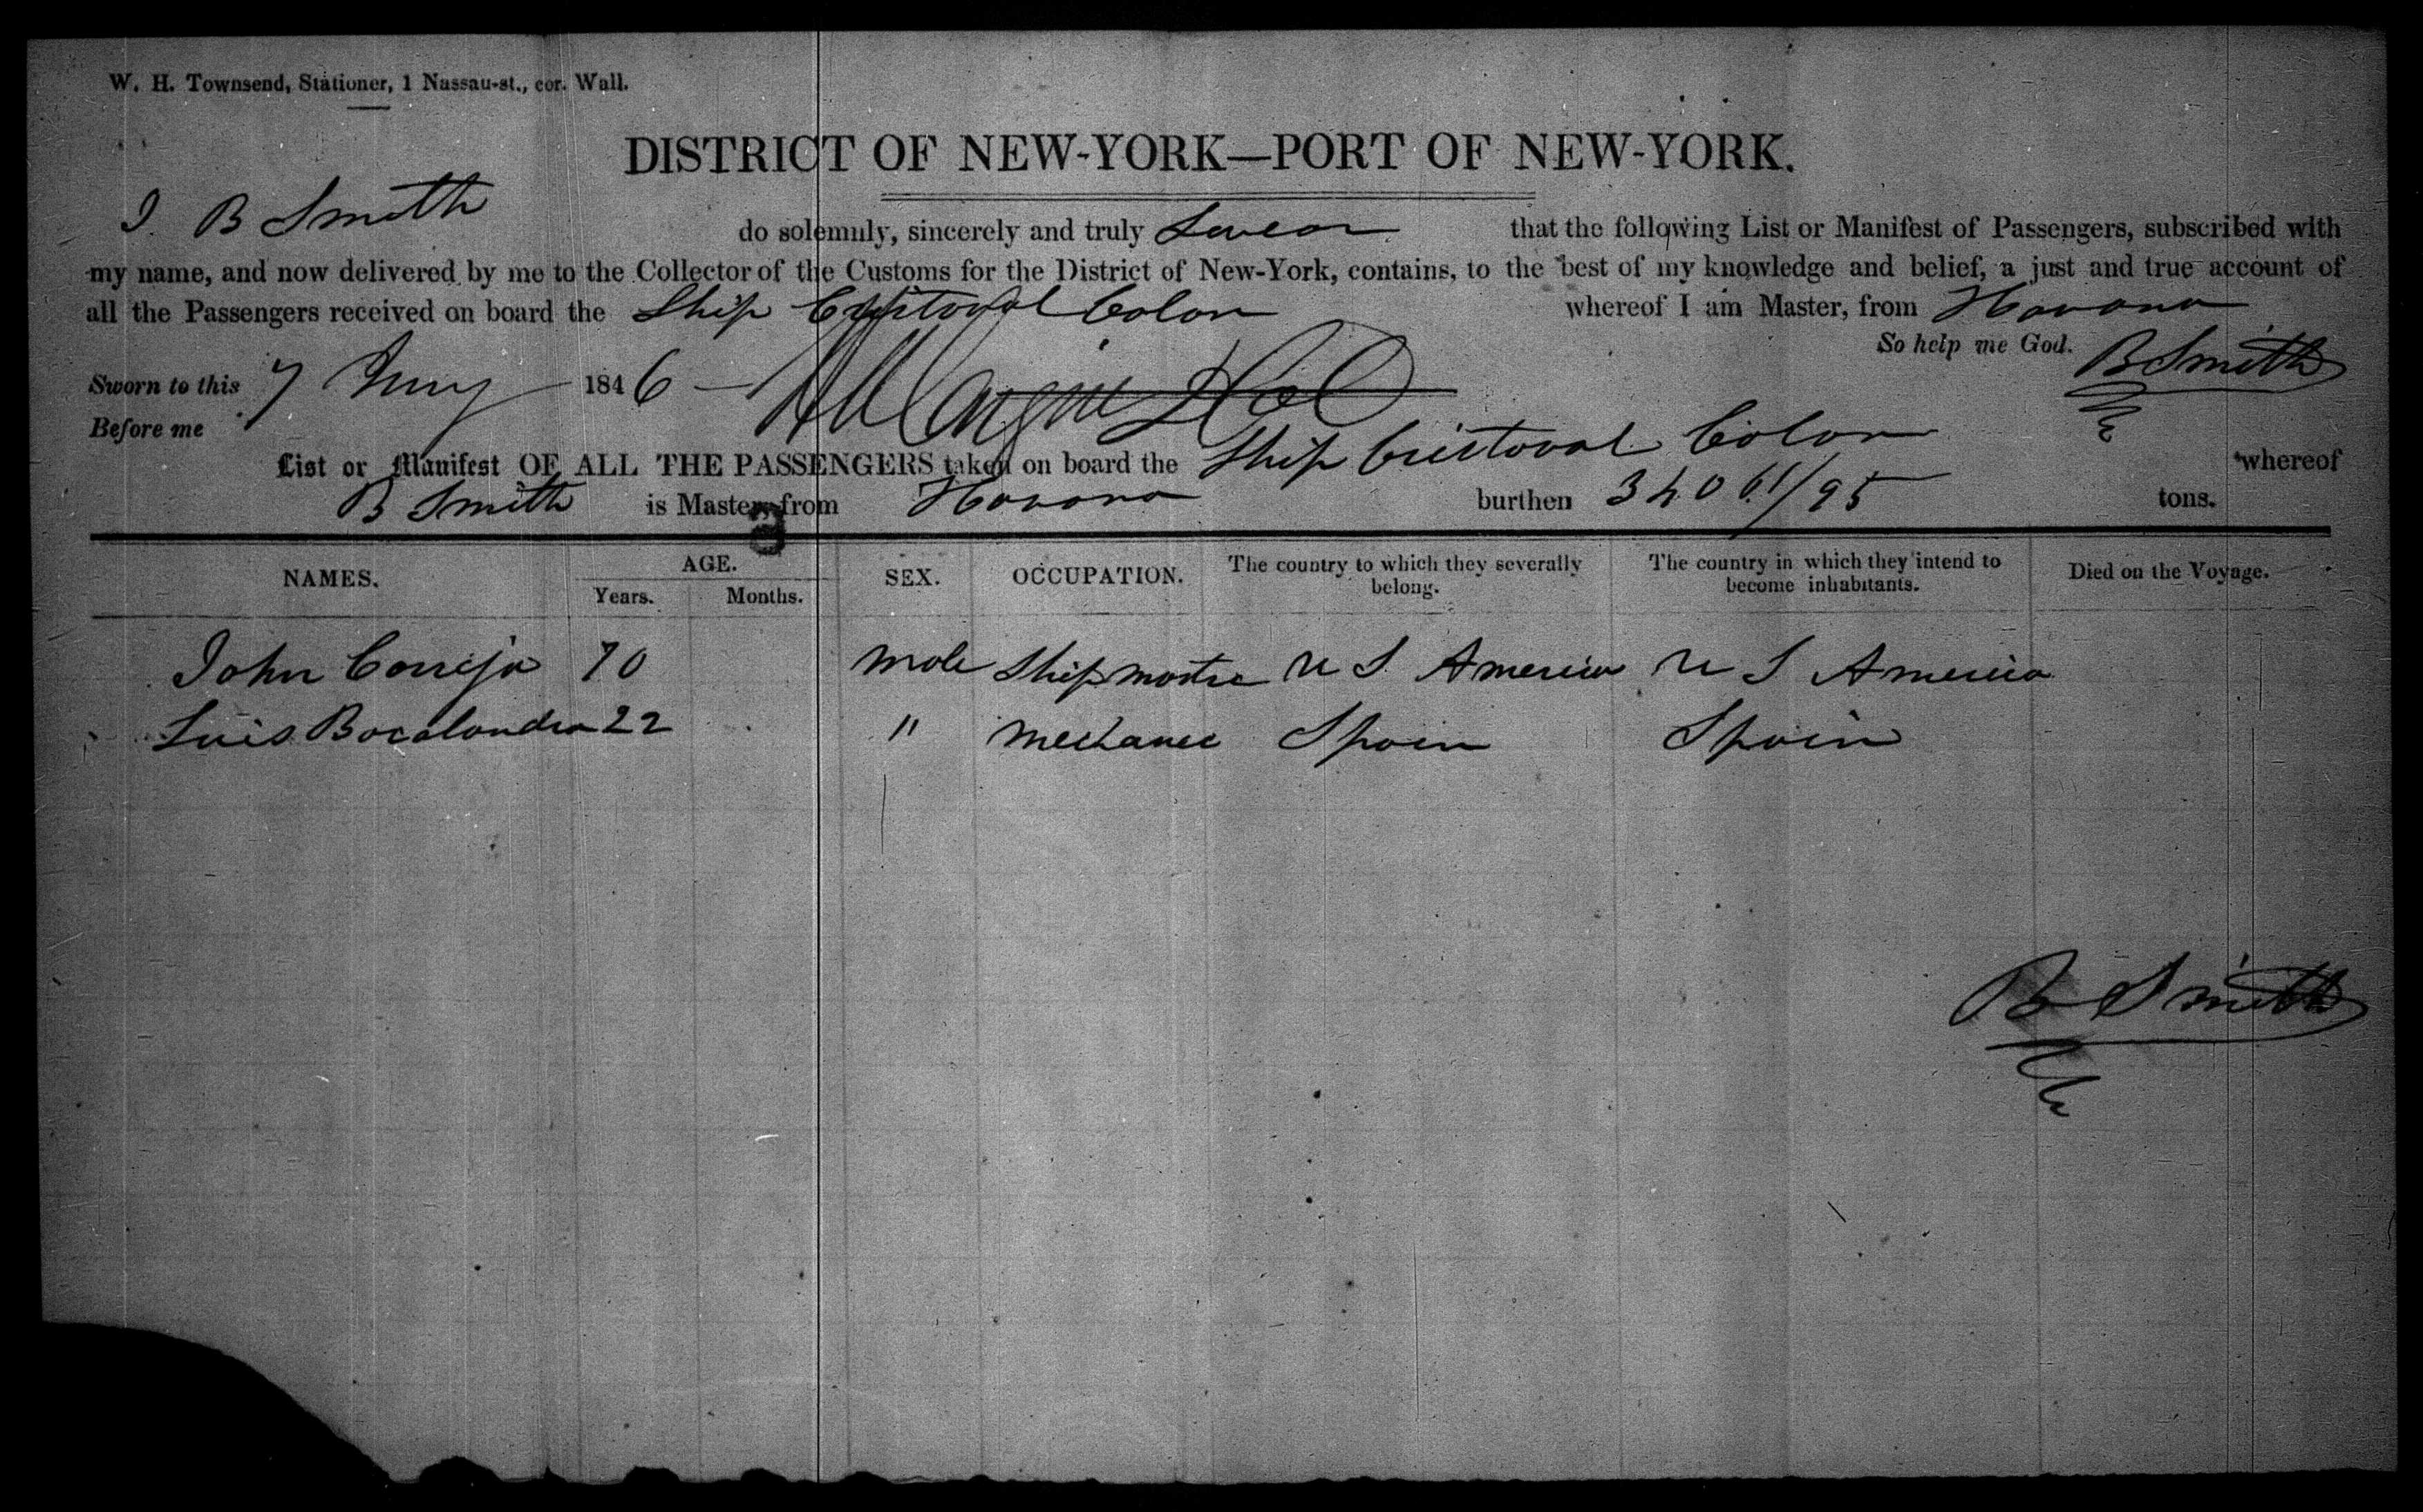 W. H. Townsend, Stationer, 1 Nassau-st., cor. Wall.
DISTRICT OF NEW-YORK—PORT OF NEW-YORK.
I. B Smith do solemnly, sincerely and truly Swear that the following List or Manifest of Passengers, subscribed with
my name, and now delivered by me to the Collector of the Customs for the District of New-York, contains, to the best of my knowledge and belief, a just and true account of
all the Passengers received on board the Ship Cristoval Colon whereof I am Master, from Havana
So help me God. B Smith
Sworn to this 7 1846
Before me
List or Manifest OF ALL THE PASSENGERS taken on board the Ship Cristoval Colon whereof
B Smith is Master, from Havana burthen 340 61/95 tons.
NAMES. AGE. SEX. OCCUPATION. The country to which they severally belong. The country in which they intend to become inhabitants. Died on the Voyage.
Years. Months.
John 70 male Ship master U S. America U S America
Luis Bacalandra 22 " mechanic Spain Spain
B Smith